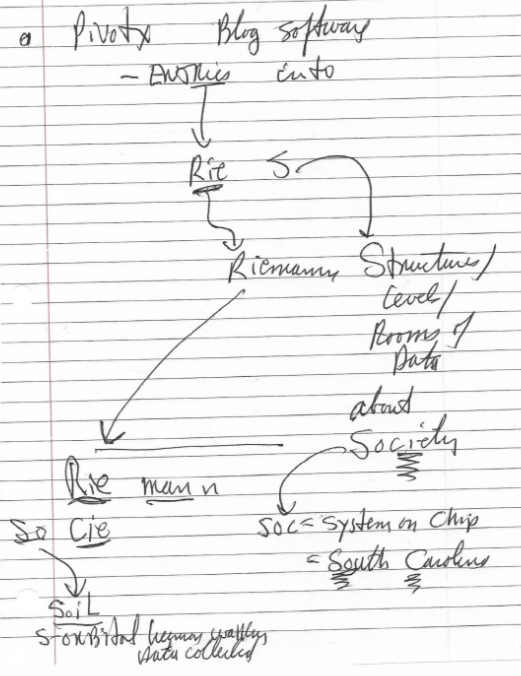 Pivotx Blog software
- Entries into
Rie S
Riemann Structures/
Level/
Rooms of
Data
about
Society
Rie mann
So Cie
SOC = System on Chip
= South Carolina
SoiL
S-orbital human
Data collected